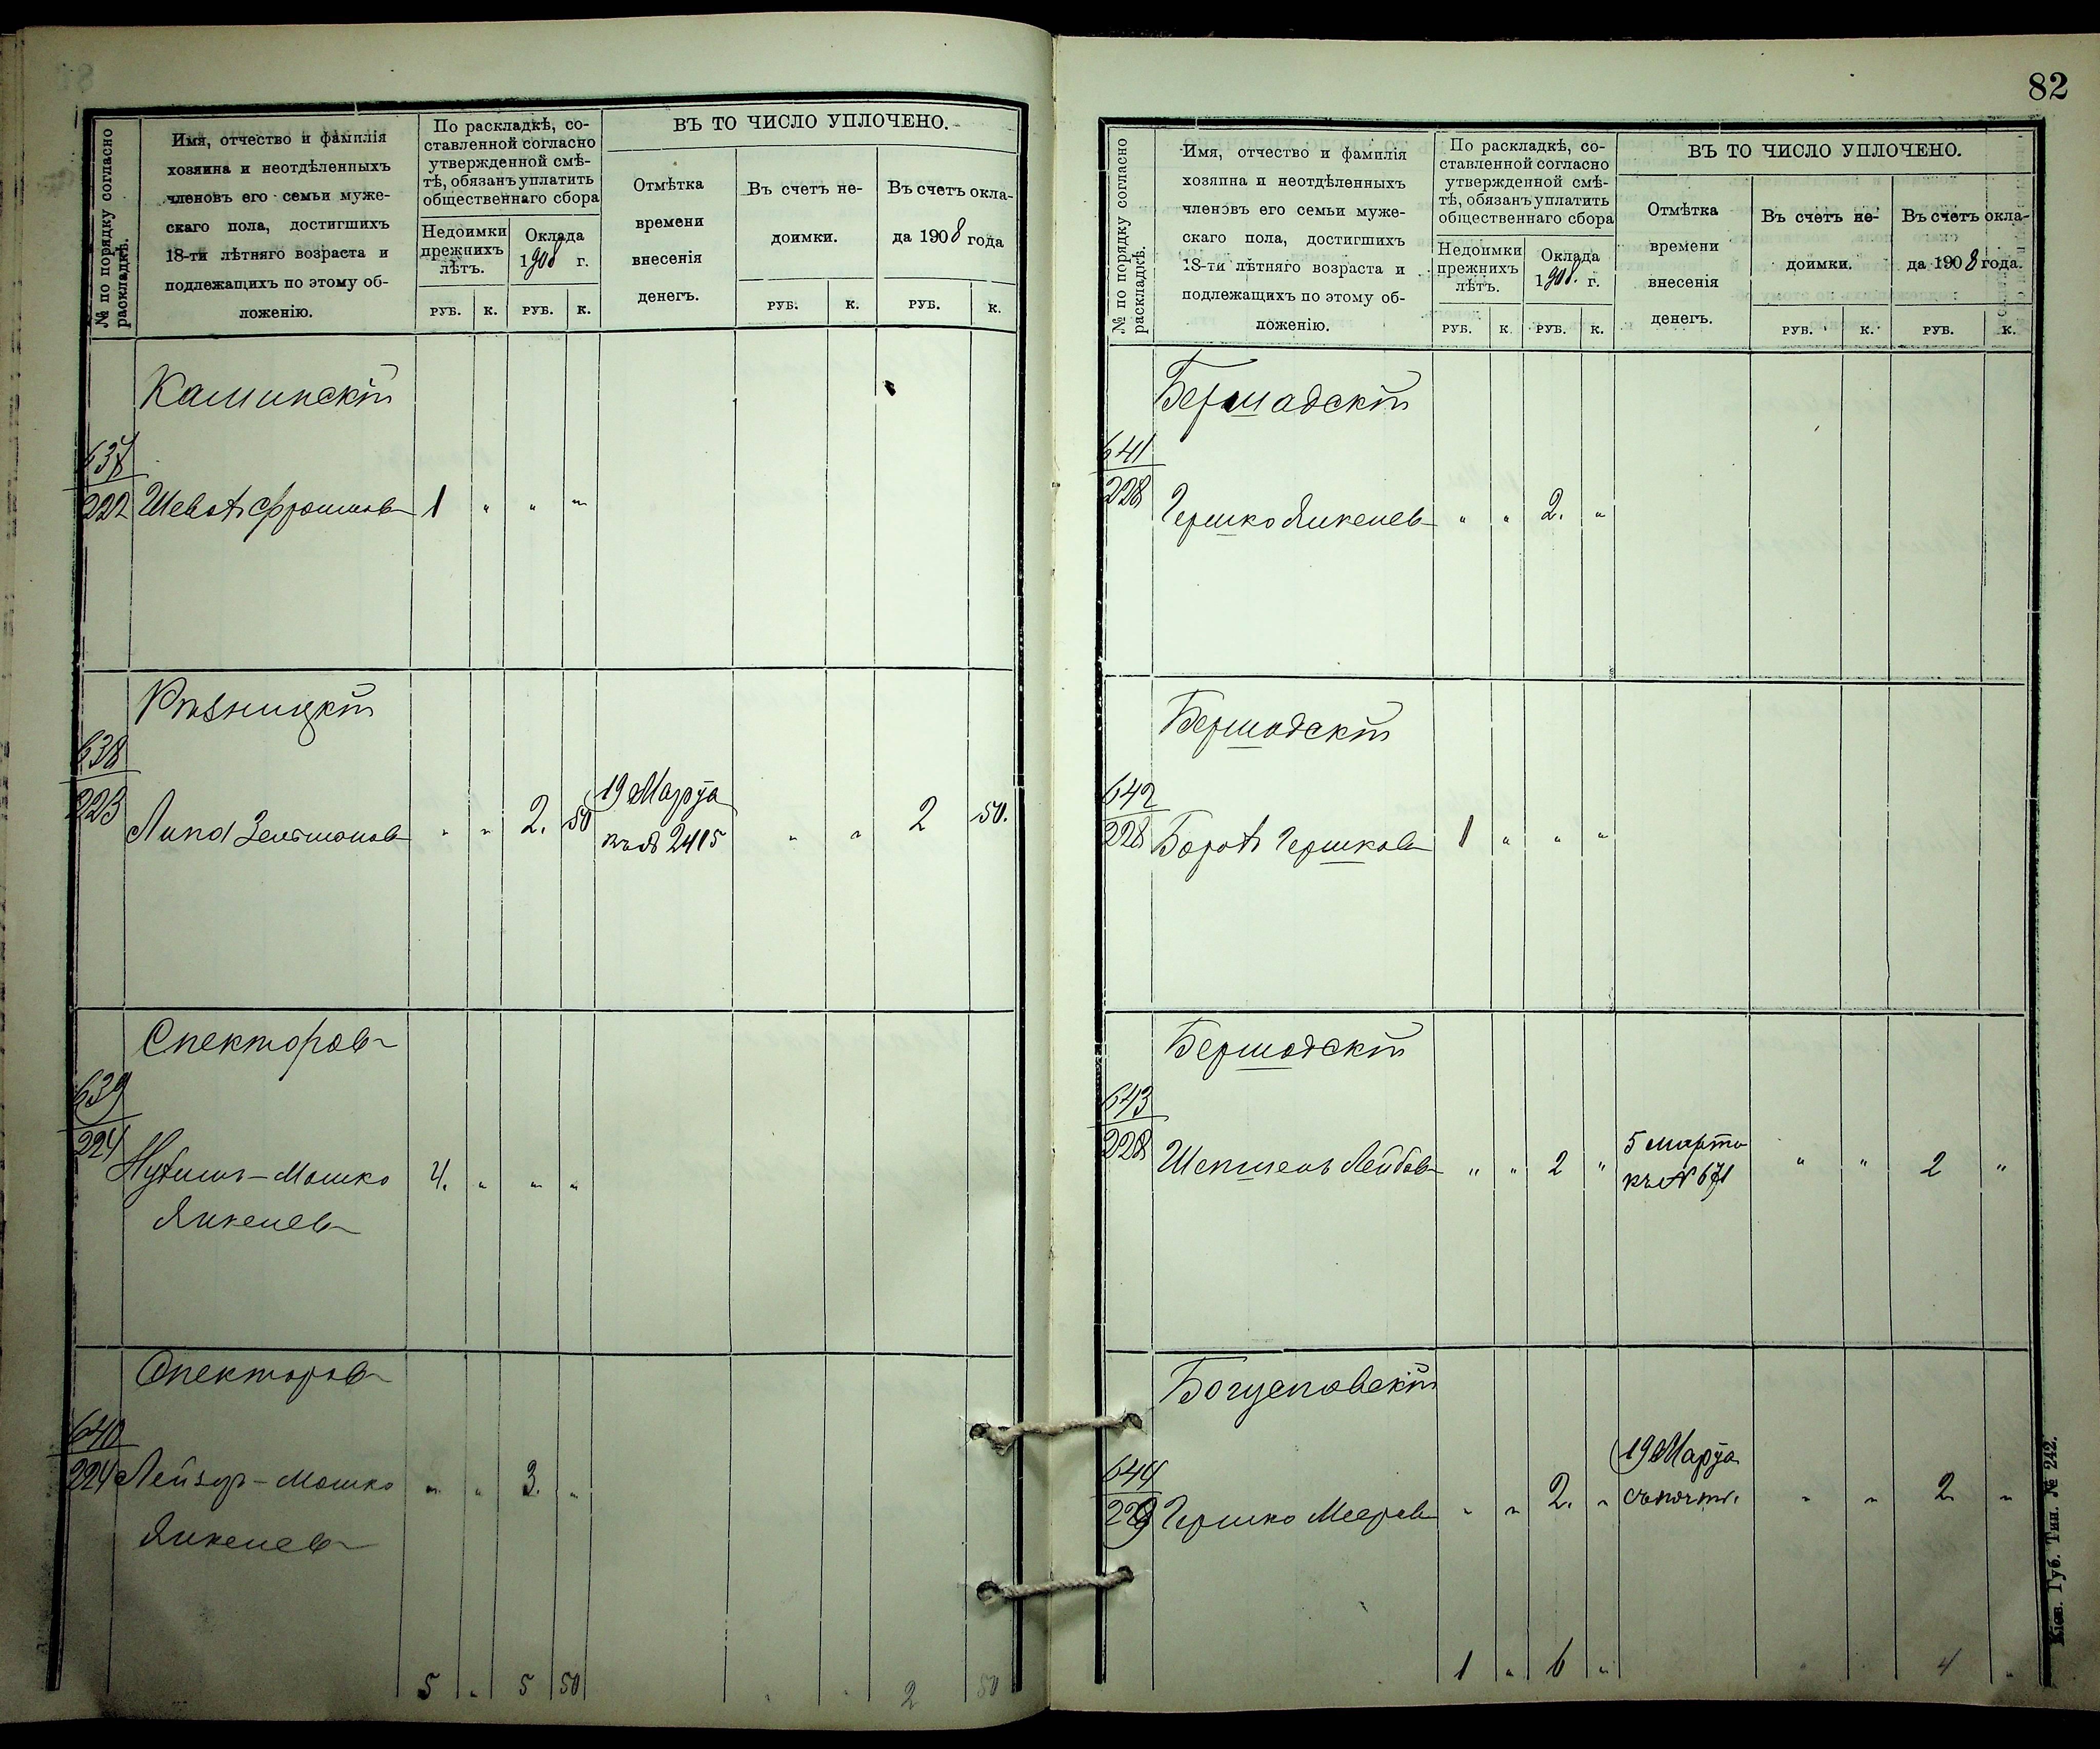 № по порядку согласно
раскладкѣ.
Имя, отчество и фамилія
хозяина и неотдѣленныхъ
членовъ его семьи муже-
скаго пола, достигшихъ
18-ти лѣтняго возраста и
подлежащихъ по этому об-
ложенію.
По раскладкѣ, со-
ставленной согласно
утвержденной смѣ-
тѣ, обязанъ уплатить
общественнаго сбора
Недоимки
прежнихъ
лѣтъ.
Оклада
1908 г.
РУБ. К. РУБ. К.
ВЪ ТО ЧИСЛО УПЛОЧЕНО.
Отмѣтка
времени
внесенія
денегъ.
Въ счетъ не-
доимки.
РУБ. К.
Въ счетъ окла-
да 1908 года
РУБ. К.
Каминскій
637
222 1 " " "
Рѣзницкій
638
223 Липа Зельмановъ " " 2. 50 19 Марта " " 2 50.
къ № 2415
Спекторовъ
639
224 Мошко 4. " " "
Янкелевъ
Спекторовъ
640
224 Лейзоръ-Мошко " " 3. "
Янкелевъ
5 " 5 50 " " 2 50
82
№ по порядку согласно
раскладкѣ.
Имя, отчество и фамилія
хозяина и неотдѣленныхъ
членовъ его семьи муже-
скаго пола, достигшихъ
18-ти лѣтняго возраста и
подлежащихъ по этому об-
ложенію.
По раскладкѣ, со-
ставленной согласно
утвержденной смѣ-
тѣ, обязанъ уплатить
общественнаго сбора
Недоимки
прежнихъ
лѣтъ.
Оклада
1908. г.
РУБ. К. РУБ. К.
ВЪ ТО ЧИСЛО УПЛОЧЕНО.
Отмѣтка
времени
внесенія
денегъ.
Въ счетъ не-
доимки.
РУБ. К.
Въ счетъ окла-
да 1908 года.
РУБ. К.
Бершадскій
641
228 Гершко Янкелев " " 2. "
Бершадскій
642
228 Борох Гершков 1 " " "
Бершадскій
643
228 Шепшель Лейбов " " 2 " 5 марта " " 2 "
къ № 671
Богуславскій
644
229 Гершко Мееров " " 2. " 19 Марта " " 2 "
1 " 6 " 4 "
Кіев. Губ. Тип. № 242.